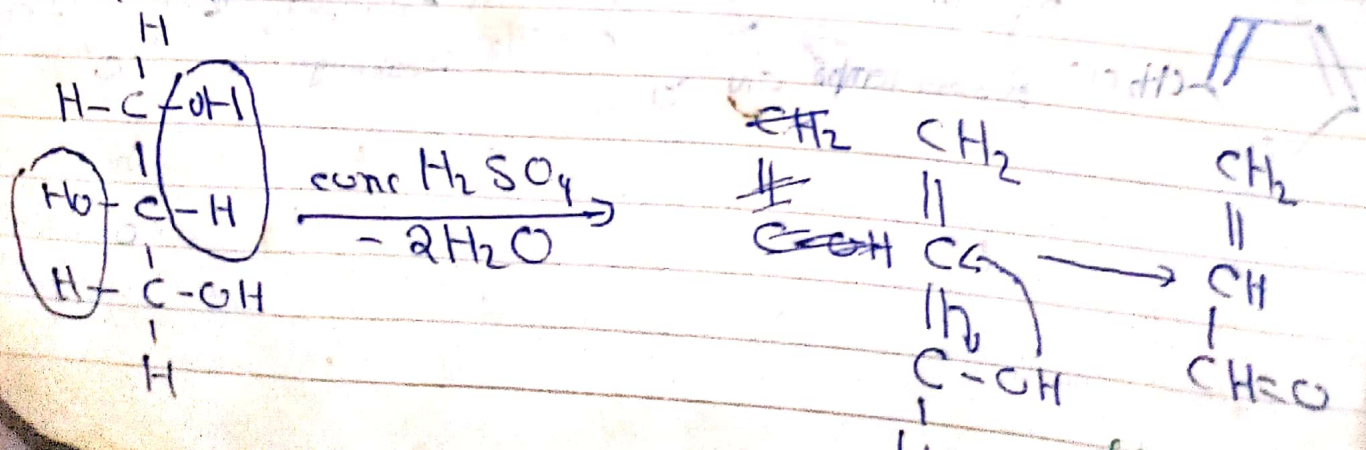 H
H-C-OH
HO-C-H
H-C-OH
H
conc H2SO4
-2H2O
CH2
C-OH
CH2
||
C
||
C-OH
CH2
||
CH
|
CH=O